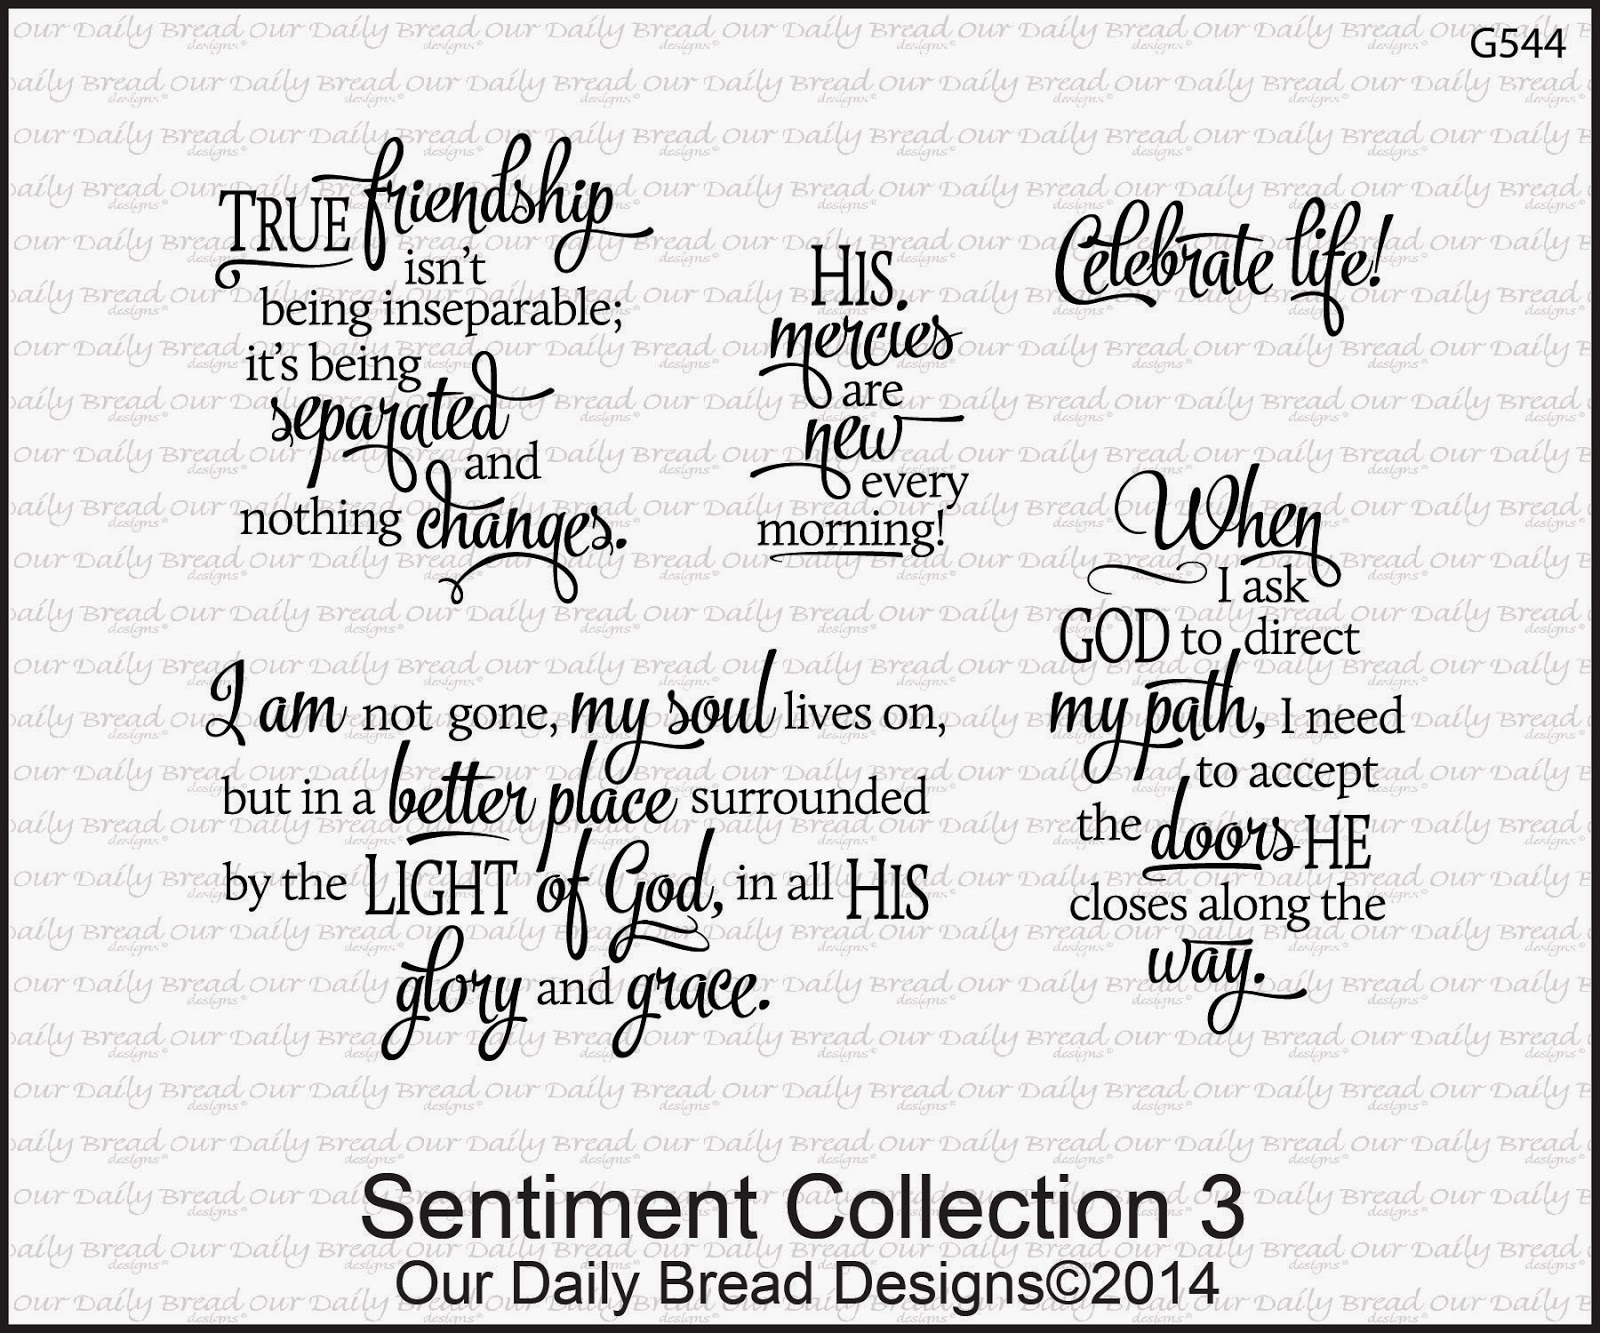 G544
TRUE friendship
isn't
being inseparable;
it's being
separated
and
nothing changes.
HIS
mercies
are
new
every
morning!
Celebrate life!
When
I ask
GOD to direct
my path, I need
to accept
the doors HE
closes along the
way.
I am not gone, my soul lives on,
but in a better place surrounded
by the LIGHT of God, in all HIS
glory and grace.
Sentiment Collection 3
Our Daily Bread Designs©2014